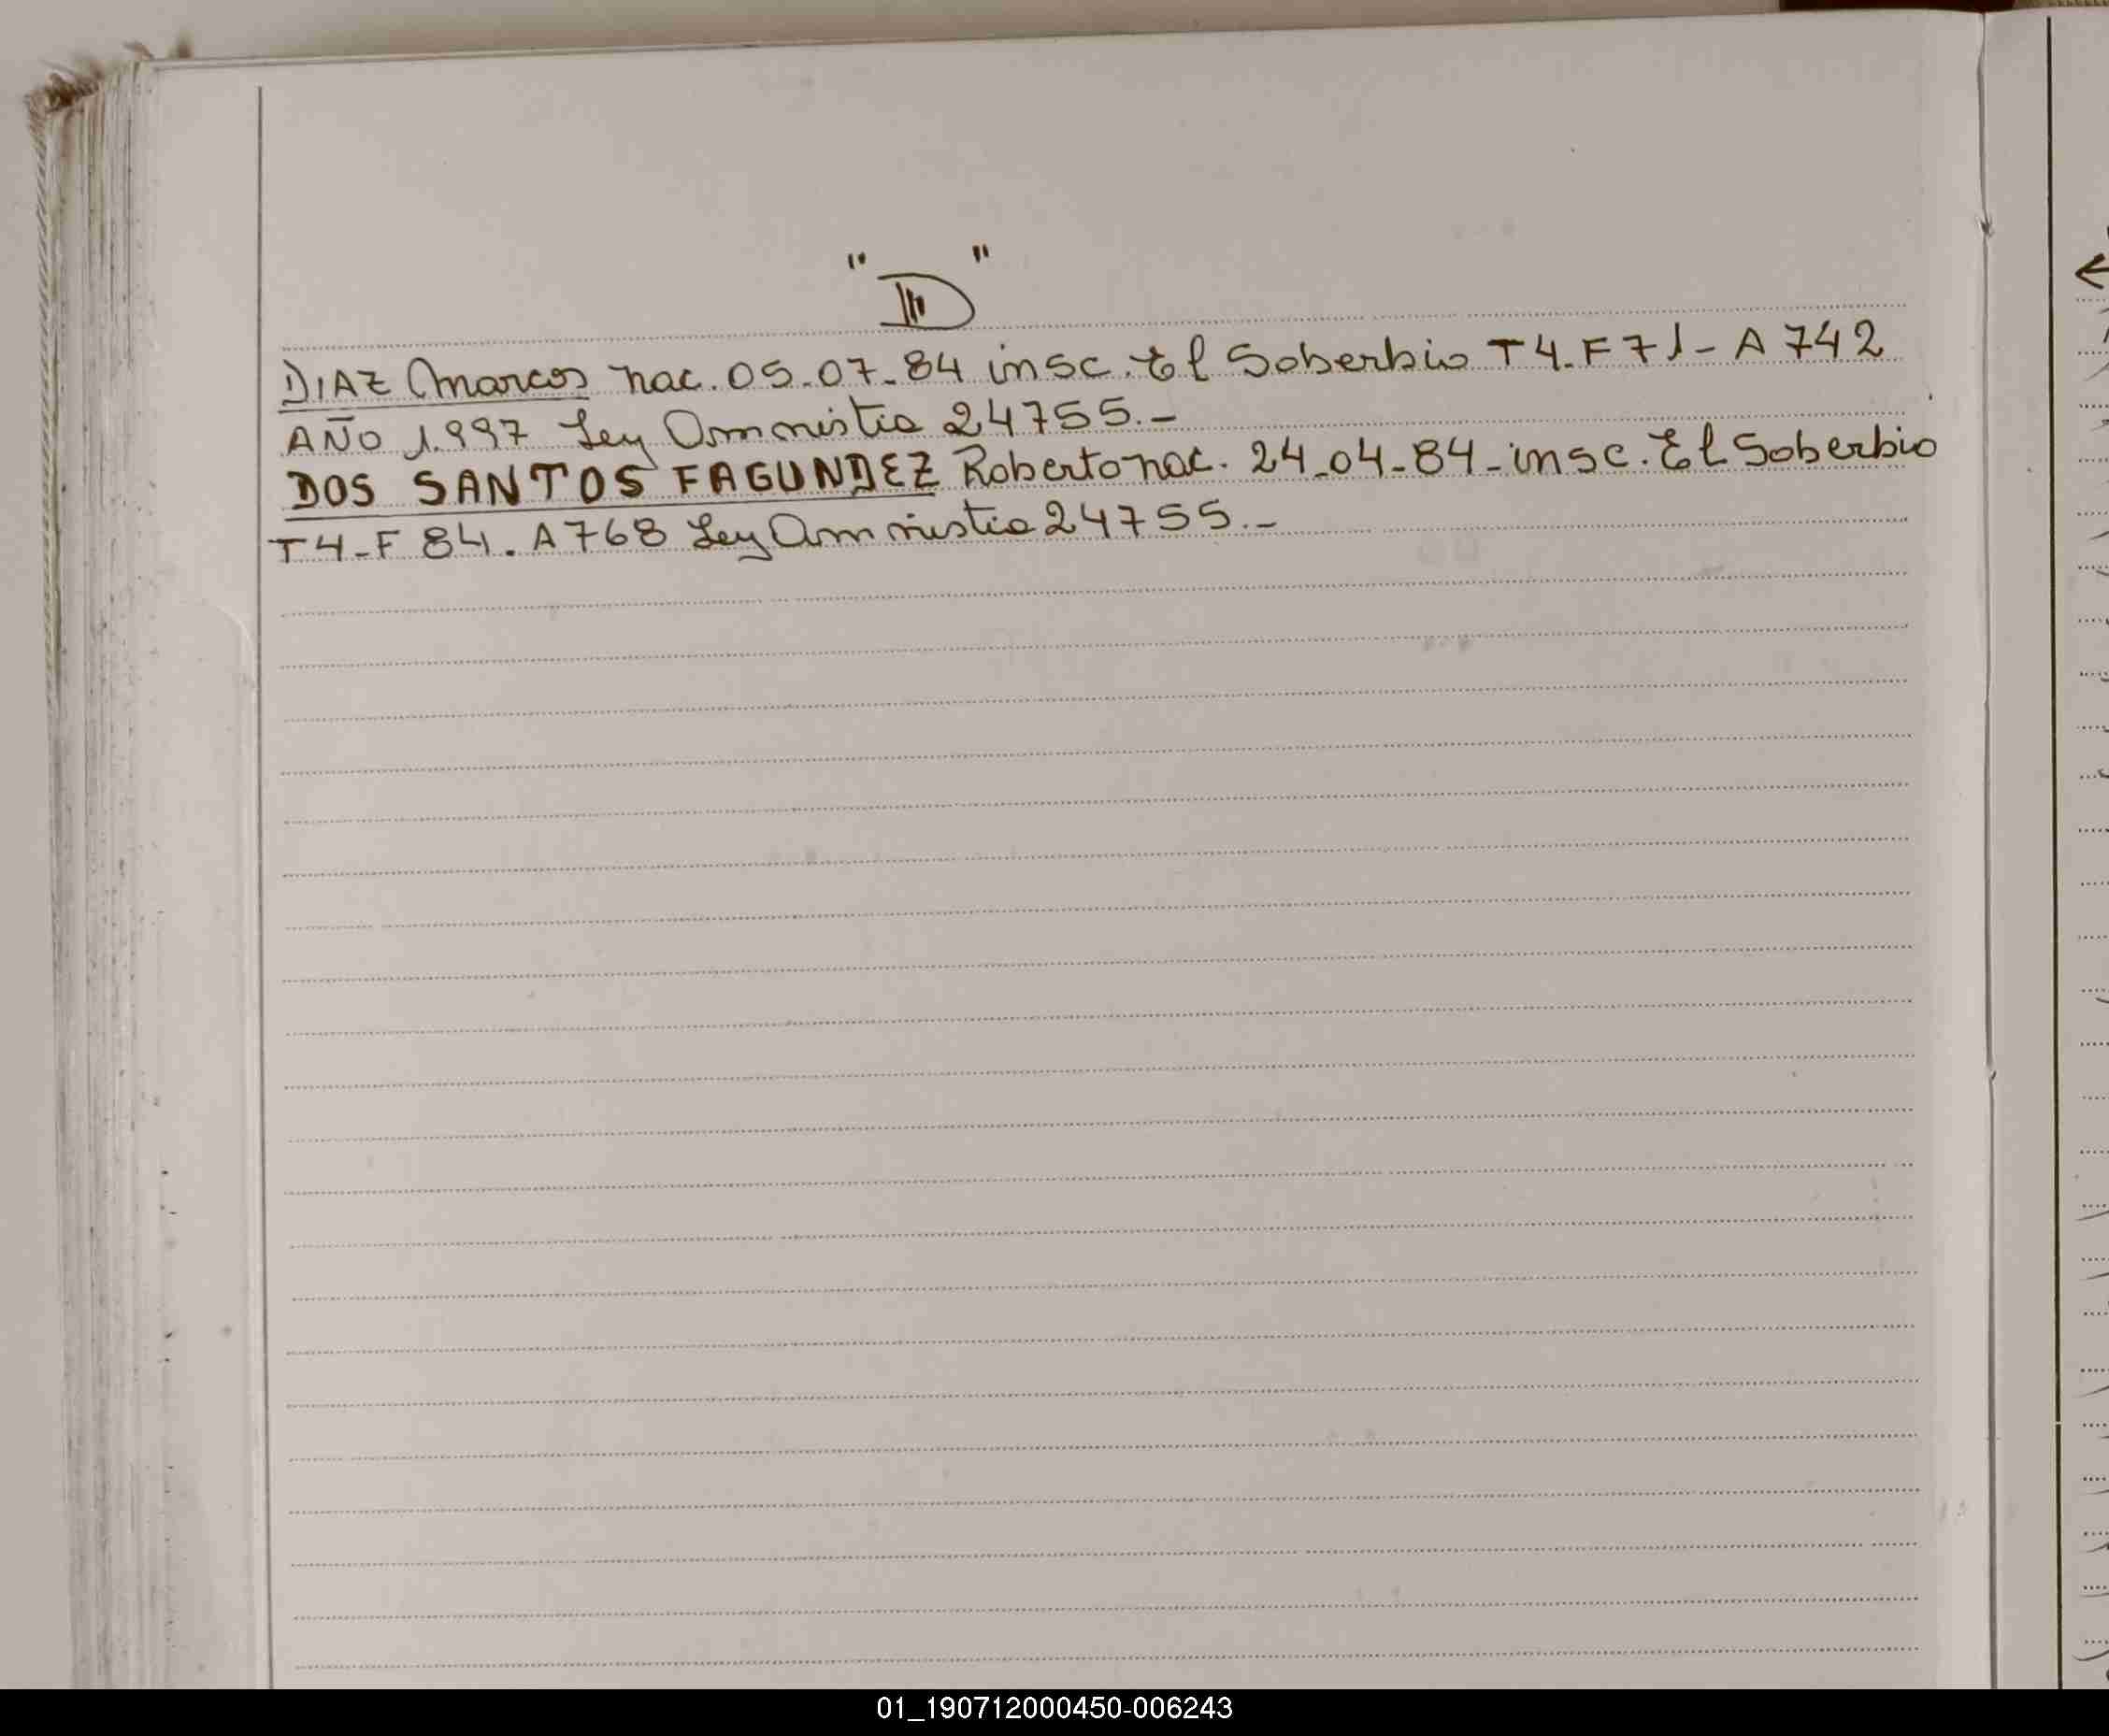 "D"
DIAZ Marcos nac. 05.07.84 insc. El Soberbio T4.F71-A742
AÑO 1.997 Ley Ammistia 24755.-
DOS SANTOS FAGUNDEZ Roberto nac. 24-04-84-insc. El Soberbio
T4-F84.A768 Ley Ammistia 24755.-
01_190712000450-006243